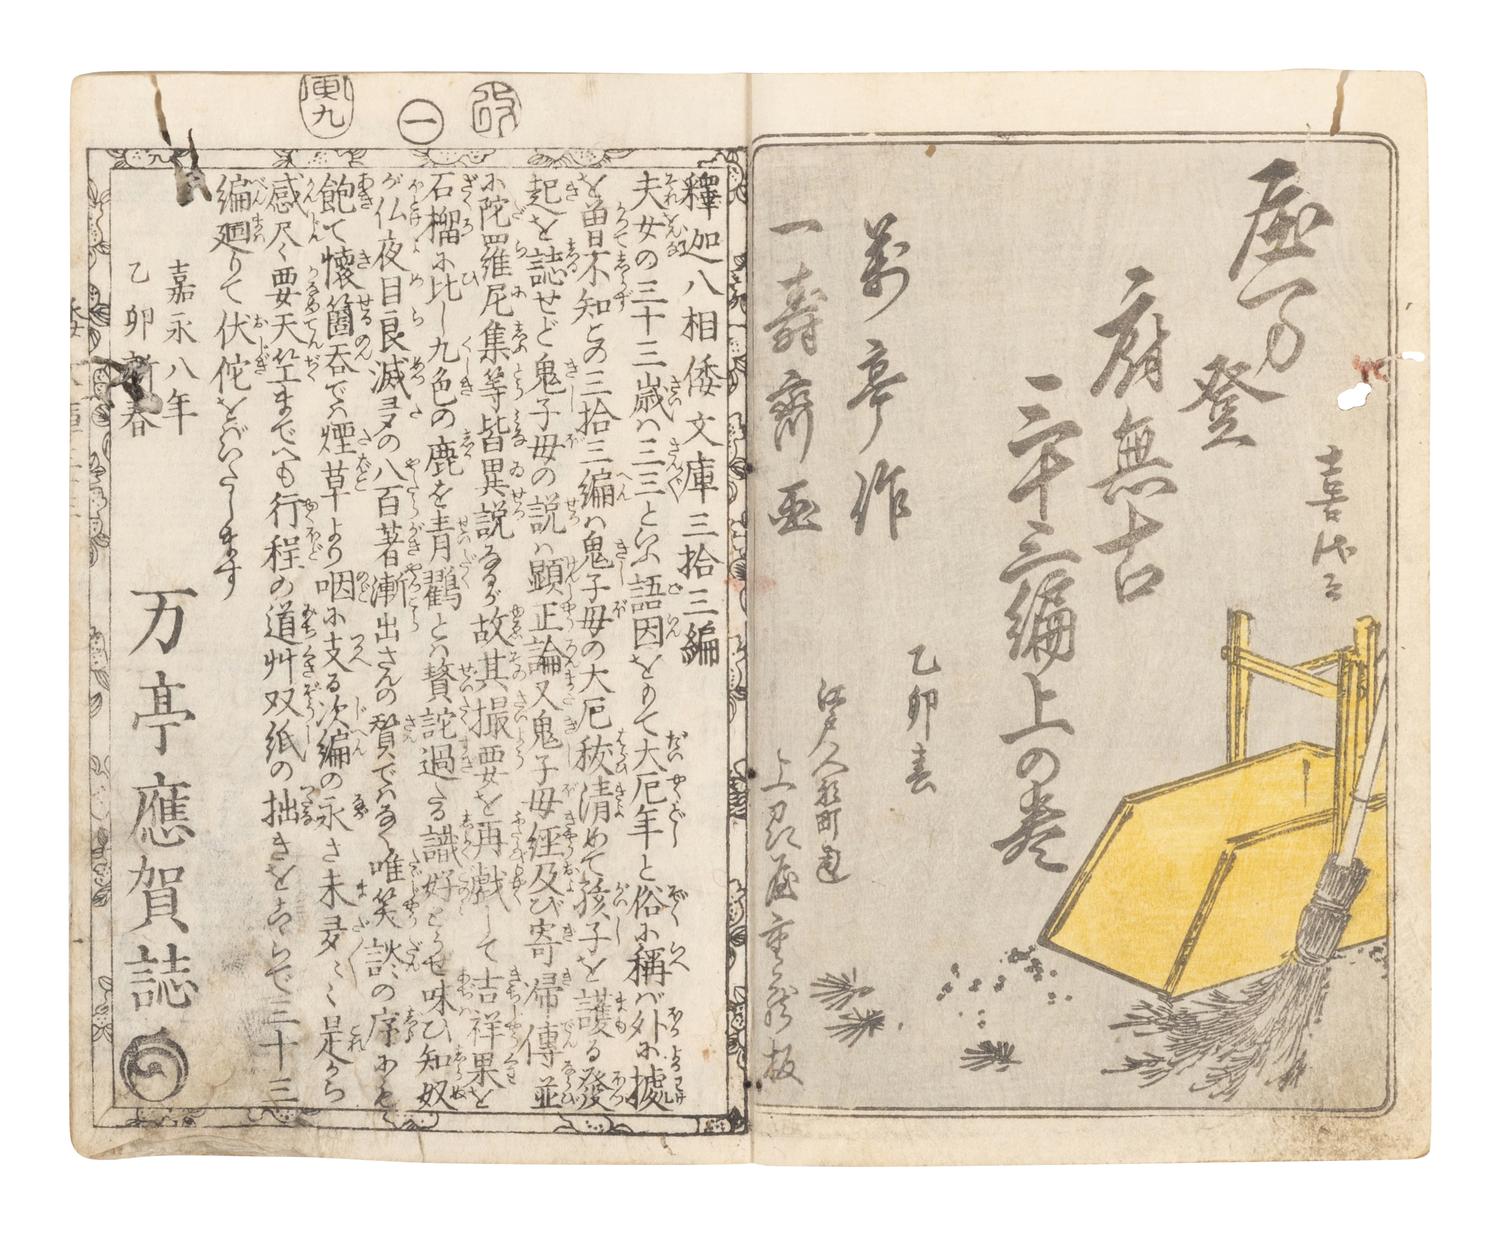 喜代三
登
府無古
三十三編上の巻
乙卯春
萬亭作
江戸人形町通
上州屋重蔵板
一壽齋画
改
一
寅九
釋迦八相倭文庫三拾三編
夫女の三十三歳ハ三三といふ語因をもて大厄年と俗に稱バ外に據
を曽不知この三拾三編ハ鬼子母の大厄祓清めて孩子を護る發
起を誌せど鬼子母の説ハ顕正論又鬼子母経及び寄帰傳並
に陀羅尼集等皆異説なるが故其撮要を再戯して吉祥果を
石榴に比し九色の鹿を青鸐とハ贅詫過たる識好どうせ味ひ知奴
が仏夜目良滅多の八百著漸出さんの贅でハなく唯笑談の序にもと
飽て懐箇呑でハ煙草より咽に支る次編の永さ未多々是から
感尽く要天竺までへも行程の道艸双紙の拙きをこらで三十三
編廻りて伏侘をべいたします
嘉永八年
乙卯新春
万亭應賀誌